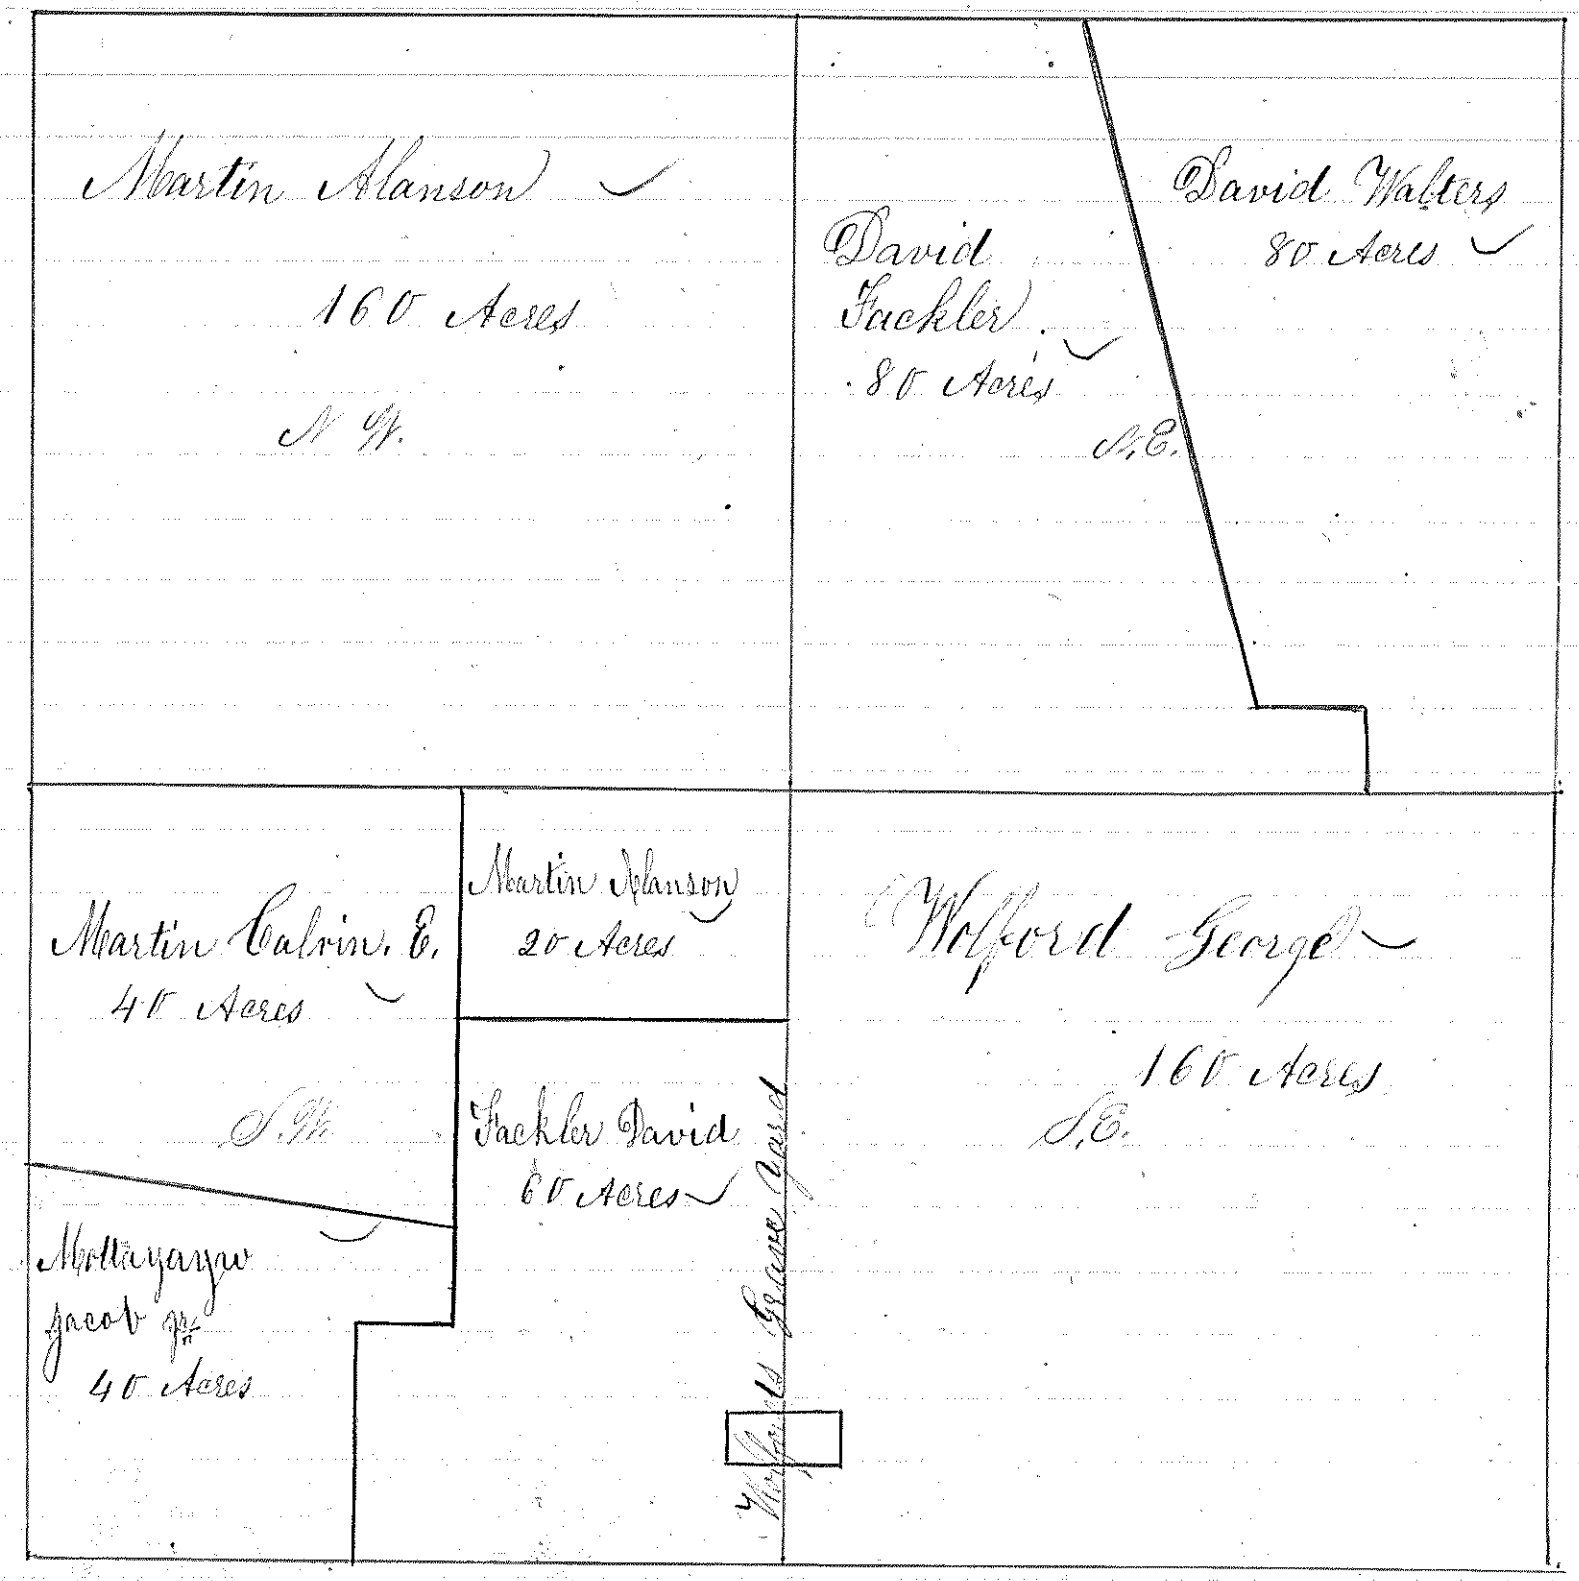 Martin Alanson
160 Acres
N W.
David
Fackler
80 Acres
N.E.
David Walters
80 Acres
Martin Calvin. E.
40 Acres
S.W.
Martin Alanson
20 Acres
Fackler David
60 Acres
Jacob Jr
40 Acres
Wolfords Grave Yard
Wolford George
160 Acres
S.E.